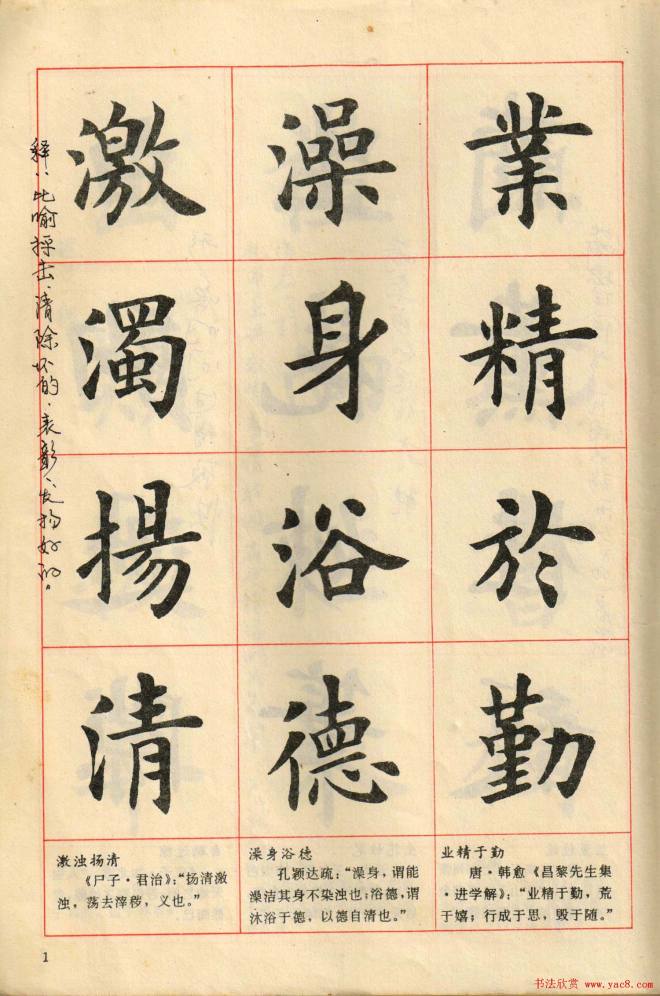 業精於勤
澡身浴德
激濁揚清
释：比喻抨击、清除坏的，表彰、发扬好的。
业精于勤
唐·韩愈《昌黎先生集
·进学解》：“业精于勤，荒
于嬉；行成于思，毁于随。”
澡身浴德
孔颖达疏：“澡身，谓能
澡洁其身不染浊也；浴德，谓
沐浴于德，以德自清也。”
激浊扬清
《尸子·君治》：“扬清激
浊，荡去滓秽，义也。”
1
书法欣赏 www.yac8.com